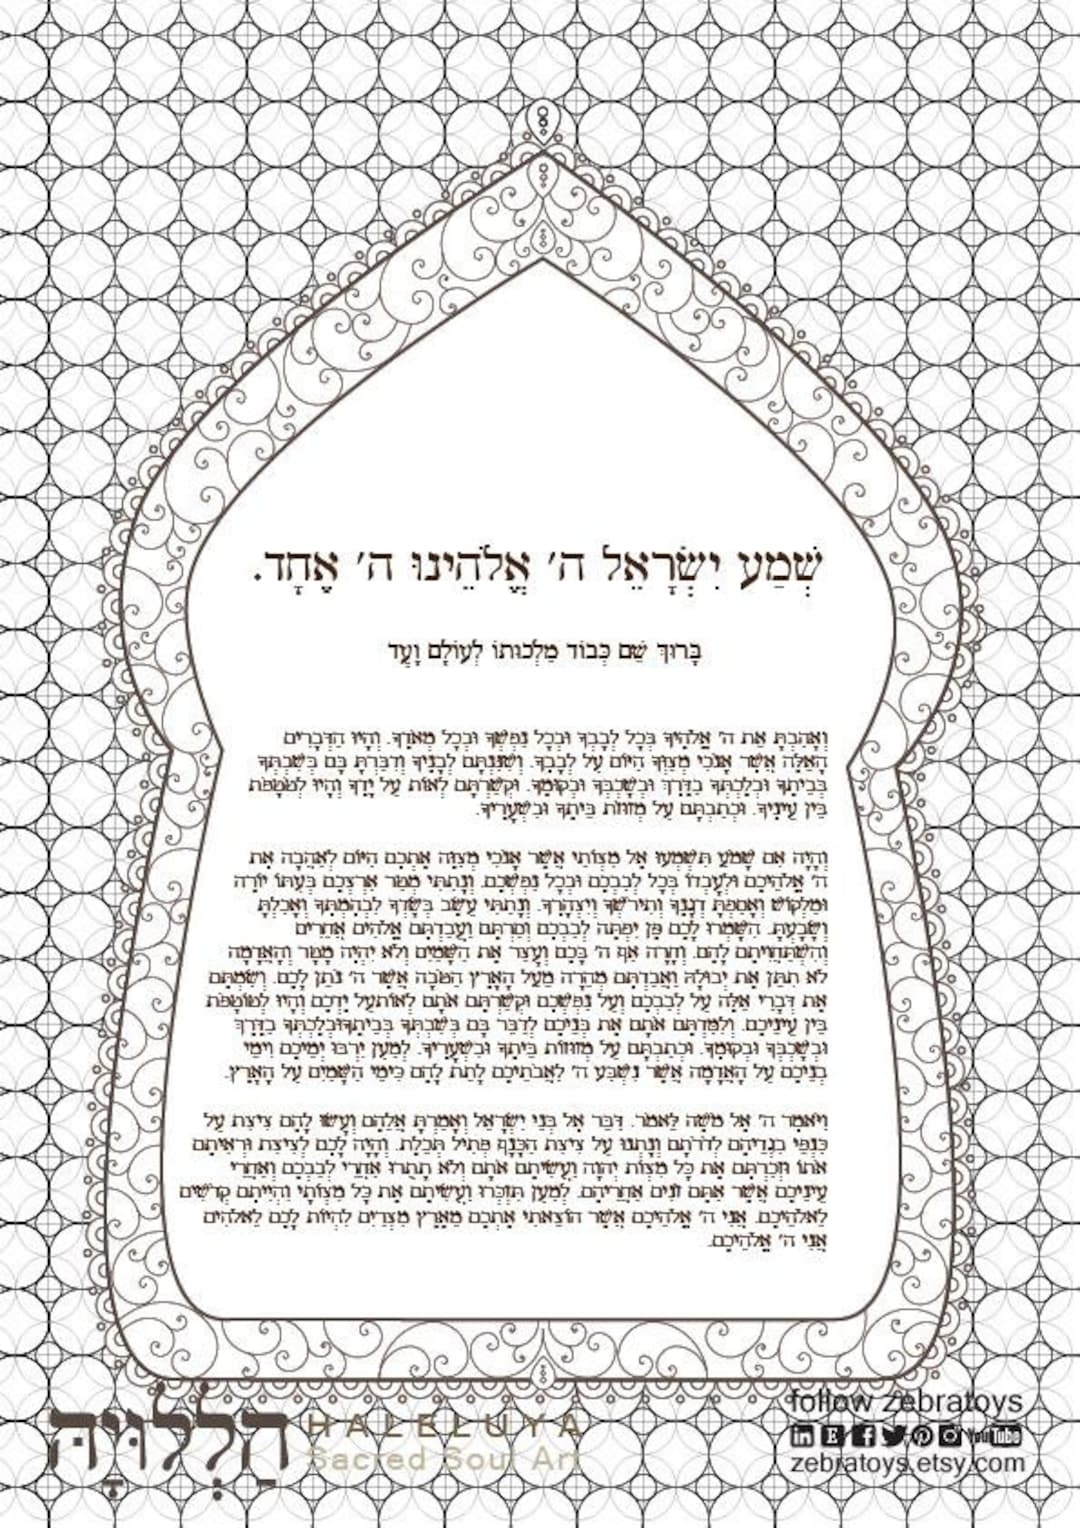 שְׁמַע יִשְׂרָאֵל ה' אֱלֹהֵינוּ ה' אֶחָד.
בָּרוּךְ שֵׁם כְּבוֹד מַלְכוּתוֹ לְעוֹלָם וָעֶד
וְאָהַבְתָּ אֵת ה' אֱלֹהֶיךָ בְּכָל לְבָבְךָ וּבְכָל נַפְשְׁךָ וּבְכָל מְאֹדֶךָ. וְהָיוּ הַדְּבָרִים
הָאֵלֶּה אֲשֶׁר אָנֹכִי מְצַוְּךָ הַיּוֹם עַל לְבָבֶךָ. וְשִׁנַּנְתָּם לְבָנֶיךָ וְדִבַּרְתָּ בָּם בְּשִׁבְתְּךָ
בְּבֵיתֶךָ וּבְלֶכְתְּךָ בַדֶּרֶךְ וּבְשָׁכְבְּךָ וּבְקוּמֶךָ. וּקְשַׁרְתָּם לְאוֹת עַל יָדֶךָ וְהָיוּ לְטֹטָפֹת
בֵּין עֵינֶיךָ. וּכְתַבְתָּם עַל מְזוּזֹת בֵּיתֶךָ וּבִשְׁעָרֶיךָ.
וְהָיָה אִם שָׁמֹעַ תִּשְׁמְעוּ אֶל מִצְוֹתַי אֲשֶׁר אָנֹכִי מְצַוֶּה אֶתְכֶם הַיּוֹם לְאַהֲבָה אֶת
ה' אֱלֹהֵיכֶם וּלְעָבְדוֹ בְּכָל לְבַבְכֶם וּבְכָל נַפְשְׁכֶם. וְנָתַתִּי מְטַר אַרְצְכֶם בְּעִתּוֹ יוֹרֶה
וּמַלְקוֹשׁ וְאָסַפְתָּ דְגָנֶךָ וְתִירֹשְׁךָ וְיִצְהָרֶךָ. וְנָתַתִּי עֵשֶׂב בְּשָׂדְךָ לִבְהֶמְתֶּךָ וְאָכַלְתָּ
וְשָׂבָעְתָּ. הִשָּׁמְרוּ לָכֶם פֶּן יִפְתֶּה לְבַבְכֶם וְסַרְתֶּם וַעֲבַדְתֶּם אֱלֹהִים אֲחֵרִים
וְהִשְׁתַּחֲוִיתֶם לָהֶם. וְחָרָה אַף ה' בָּכֶם וְעָצַר אֶת הַשָּׁמַיִם וְלֹא יִהְיֶה מָטָר וְהָאֲדָמָה
לֹא תִתֵּן אֶת יְבוּלָהּ וַאֲבַדְתֶּם מְהֵרָה מֵעַל הָאָרֶץ הַטֹּבָה אֲשֶׁר ה' נֹתֵן לָכֶם. וְשַׂמְתֶּם
אֶת דְּבָרַי אֵלֶּה עַל לְבַבְכֶם וְעַל נַפְשְׁכֶם וּקְשַׁרְתֶּם אֹתָם לְאוֹתעַל יֶדְכֶם וְהָיוּ לְטוֹטָפֹת
בֵּין עֵינֵיכֶם. וְלִמַּדְתֶּם אֹתָם אֶת בְּנֵיכֶם לְדַבֵּר בָּם בְּשִׁבְתְּךָ בְּבֵיתֶךָוּבְלֶכְתְּךָ בַדֶּרֶךְ
וּבְשָׁכְבְּךָ וּבְקוּמֶךָ. וּכְתַבְתָּם עַל מְזוּזוֹת בֵּיתֶךָ וּבִשְׁעָרֶיךָ. לְמַעַן יִרְבּוּ יְמֵיכֶם וִימֵי
בְנֵיכֶם עַל הָאֲדָמָה אֲשֶׁר נִשְׁבַּע ה' לַאֲבֹתֵיכֶם לָתֵת לָהֶם כִּימֵי הַשָּׁמַיִם עַל הָאָרֶץ.
וַיֹּאמֶר ה' אֶל מֹשֶׁה לֵּאמֹר. דַּבֵּר אֶל בְּנֵי יִשְׂרָאֵל וְאָמַרְתָּ אֲלֵהֶם וְעָשׂוּ לָהֶם צִיצִת עַל
כַּנְפֵי בִגְדֵיהֶם לְדֹרֹתָם וְנָתְנוּ עַל צִיצִת הַכָּנָף פְּתִיל תְּכֵלֶת. וְהָיָה לָכֶם לְצִיצִת וּרְאִיתֶם
אֹתוֹ וּזְכַרְתֶּם אֶת כָּל מִצְוֹת יְהוָה וַעֲשִׂיתֶם אֹתָם וְלֹא תָתֻרוּ אַחֲרֵי לְבַבְכֶם וְאַחֲרֵי
עֵינֵיכֶם אֲשֶׁר אַתֶּם זֹנִים אַחֲרֵיהֶם. לְמַעַן תִּזְכְּרוּ וַעֲשִׂיתֶם אֶת כָּל מִצְוֹתָי וִהְיִיתֶם קְדֹשִׁים
לֵאלֹהֵיכֶם. אֲנִי ה' אֱלֹהֵיכֶם אֲשֶׁר הוֹצֵאתִי אֶתְכֶם מֵאֶרֶץ מִצְרַיִם לִהְיוֹת לָכֶם לֵאלֹהִים
אֲנִי ה' אֱלֹהֵיכֶם.
הַלְלוּיָהּ HALELUYA
Sacred Soul Art
follow zebratoys
YouTube
zebratoys.etsy.com